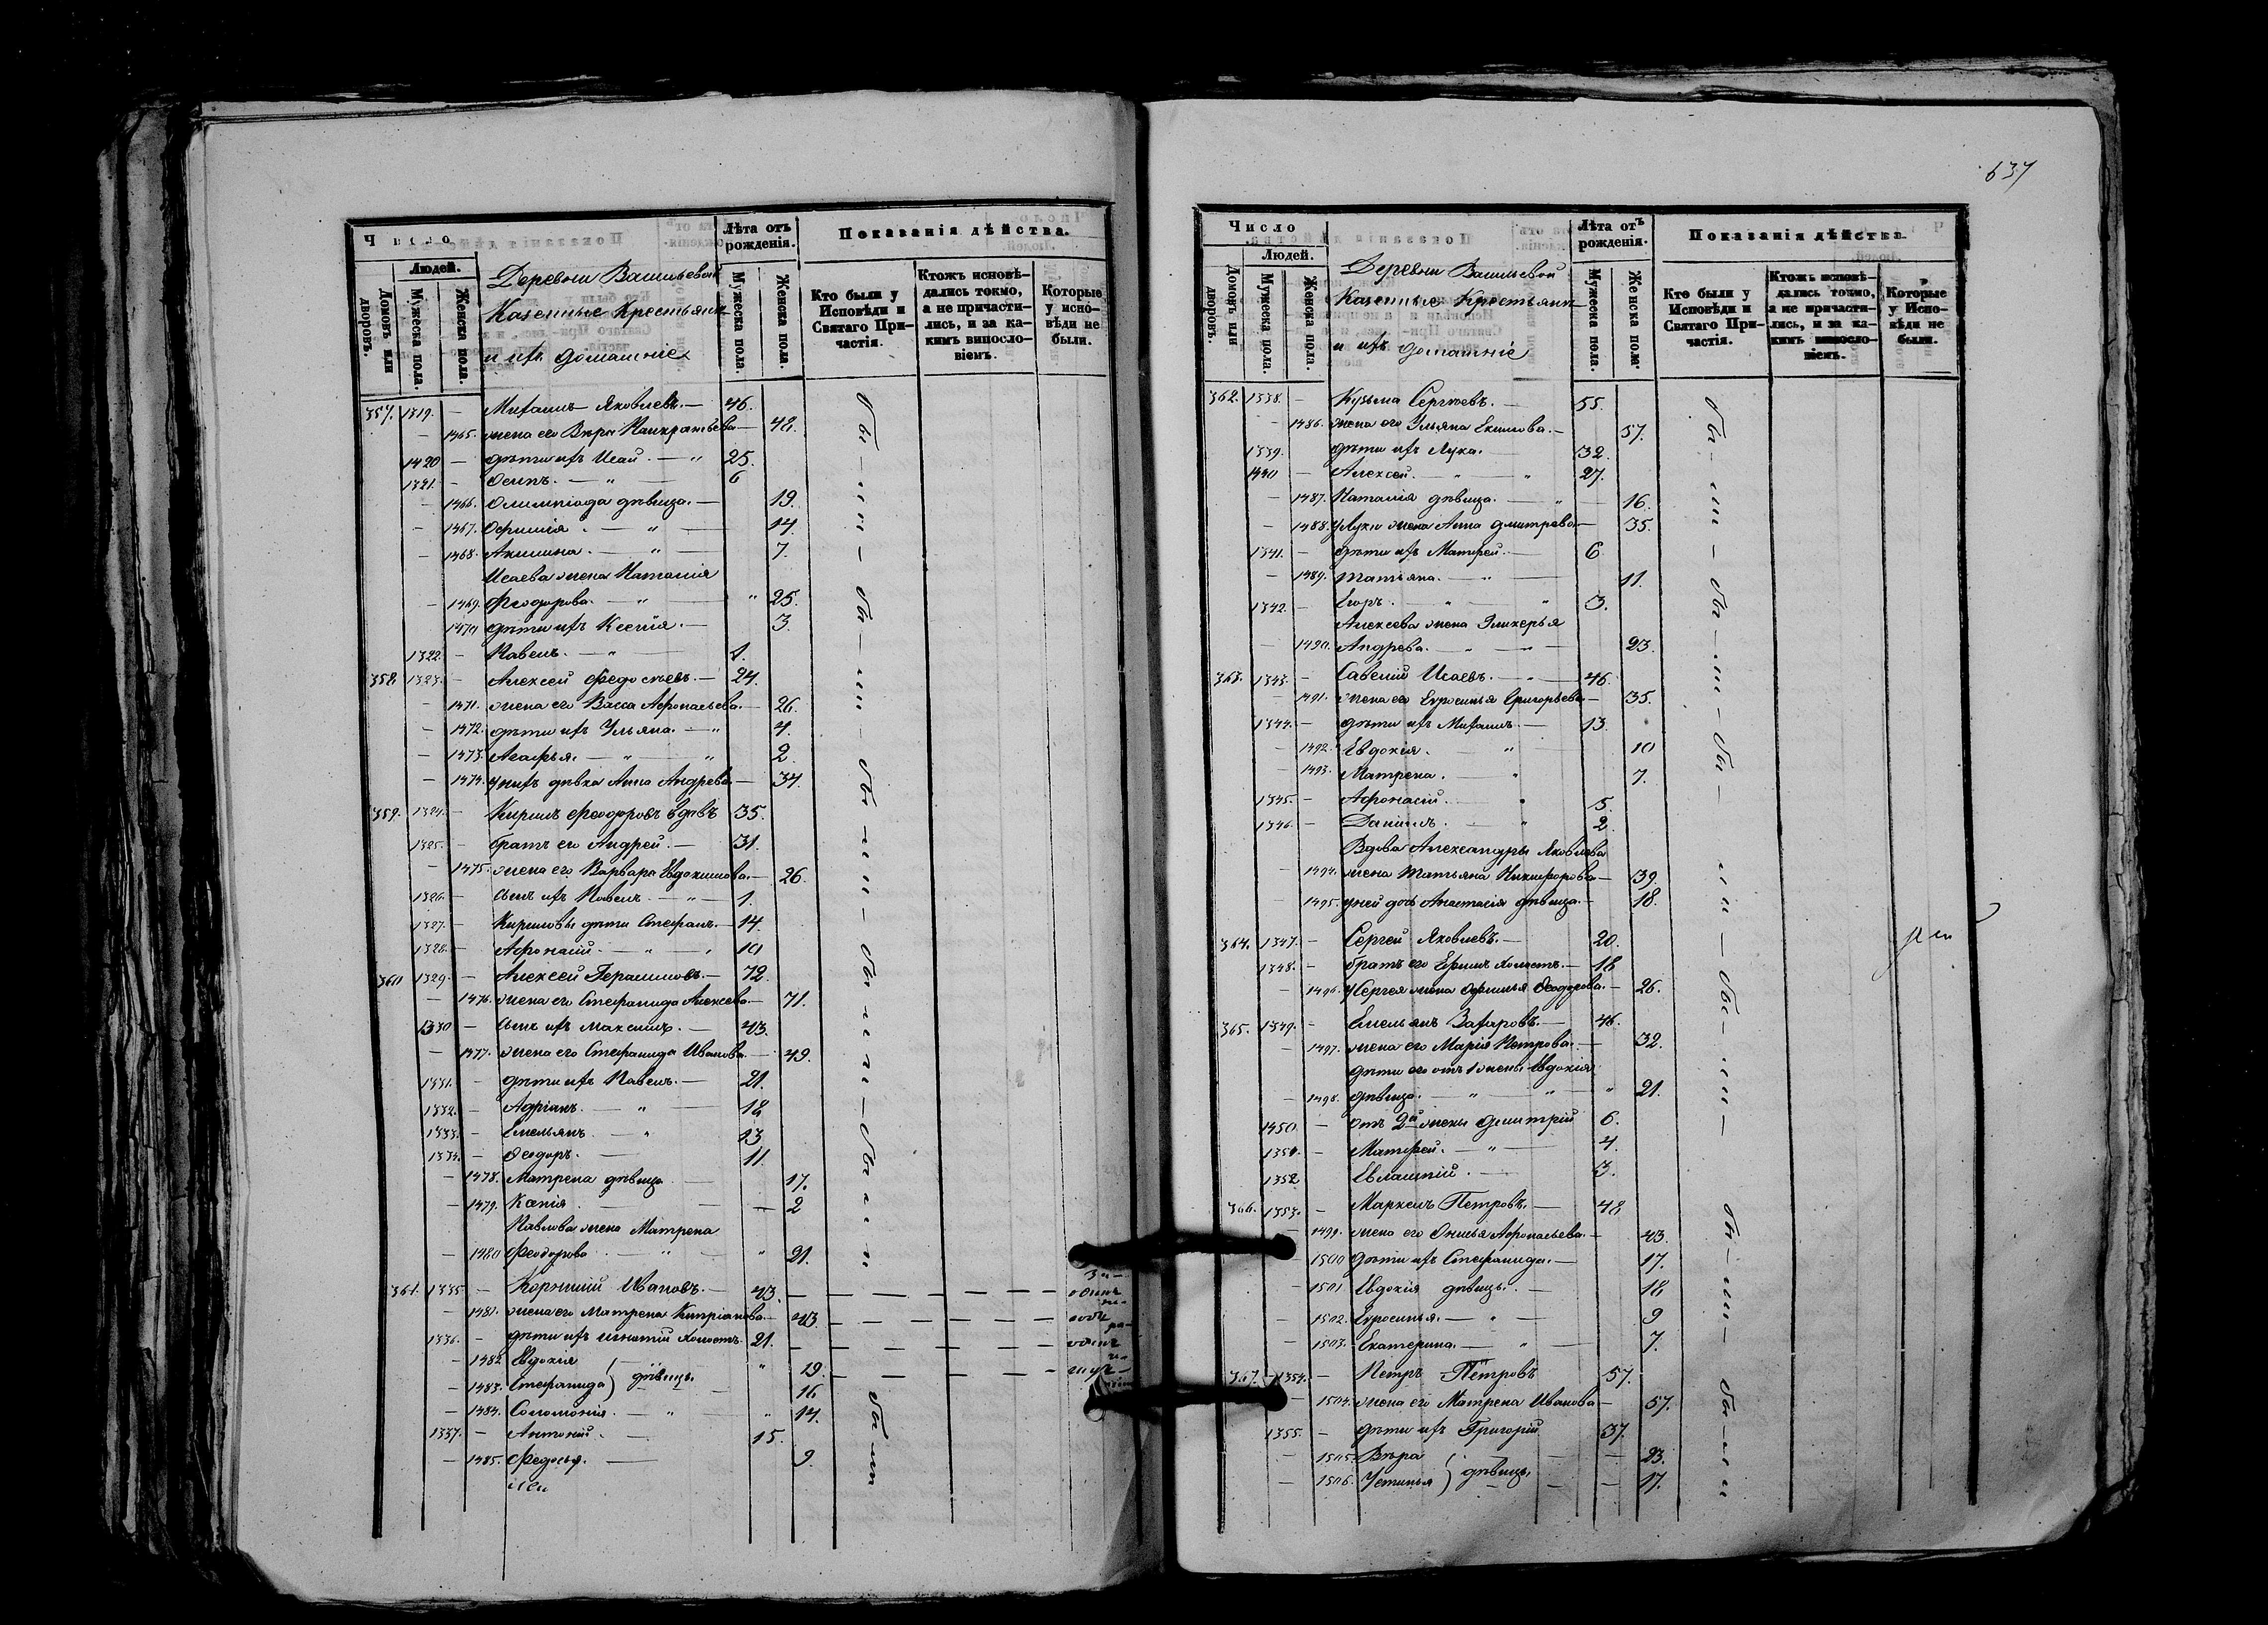 637
Число
Людей.
Домовъ или дворовъ.
Мужеска пола.
Женска пола.
Деревни Васильевой
Казенные Крестьяне
и ихъ домашніе
Лѣта отъ рожденія.
Мужеска пола.
Женска пола.
Показанія дѣйства.
Кто были у Исповѣди и Святаго Причастія.
Ктожъ исповѣдались токмо, а не причастились, и за какимъ винословіемъ.
Которые у исповѣди не были.
357. 1319. — Михаилъ Яковлевъ. — 46.
— 1465. жена его Вѣра Панкратьева — 42.
1420 — дѣти ихъ Исай. — " 25.
1321. — Осипъ. — " — 6
— 1466. Олимпіада дѣвица. — 19.
— 1467. Офимія. — " — 14.
— 1468. Акилина. — " — 7.
Исаева жена Наталія
— 1469. Феодорова. — " — " 25.
1470 дѣти ихъ Ксенія. — 3.
1322 — Павелъ. — " — 1.
358 1323. — Алексей Федосѣевъ. — 24.
— 1471. жена его Васса Афонасьева. — 26.
— 1472. дѣти ихъ Ульяна. — " 4.
— 1473. Агафья. — " " 2.
— 1474. у нихъ дѣвка Анна Андрева — 34.
359. 1324. — Кирилъ Феодоровъ вдовъ 35.
1325. — братъ его Андрей. — 31.
— 1475. жена его Варвара Евдокимова. — 26.
1326. — сынъ ихъ Павелъ. — " — 1.
1327. — Кириловы дѣти Стефанъ. — 14.
1328. — Афонасій. — " " 10
360 1329. — Алексей Герасимовъ. — 72.
— 1476. жена его Стефанида Алексева. — 71.
1330 — сынъ ихъ Максимъ. — 43.
— 1477. жена его Стефанида Иванова. — 49.
1331. — дѣти ихъ Павелъ. — 21.
1332. — Адріанъ. — " — 18
1333. — Емельянъ. — " 13
1334. — Феодоръ. — 11.
— 1478. Матрена дѣвица — 17.
— 1479. Ксенія. — — 2
Павлова жена Матрена
— 1480 Феодорова. — " — " 21.
361. 1335. — Корнилій Ивановъ. — 43.
— 1481. жена его Матрена Кипріанова. — 43.
1336. — дѣти ихъ Игнатій холостъ. 21.
— 1482 Евдокія " 19.
— 1483. Стефанида } дѣвицы. 16
— 1484. Соломонія. — " " 14.
1337. — Антоній. — 15.
— 1485. Федосья. — 9.
бы — ли — бы — ли — бы — ли — бы — ли — бы ли
бы ли
Число
Людей.
Домовъ или дворовъ.
Мужеска пола.
Женска пола.
Деревни Васильевой
Казенные Крестьяне
и ихъ домашніе
Лѣта отъ рожденія.
Мужеска пола.
Женска пола.
Показанія дѣйства
Кто были у Исповѣди и Святаго Причастія.
Ктожъ исповѣдались токмо, а не причастились, и за какимъ винословіемъ.
Которые у Исповѣди не были.
362. 1338. — Кузьма Сергѣевъ. — 55.
— 1486. жена его Ульяна Екимова. — 57.
1339. — дѣти ихъ Лука. — 32.
1340 — Алексей. — " " 27.
— 1487. Наталія дѣвица. — " 16.
— 1488. у Луки жена Анна Дмитрева — 35.
1341. — дѣти ихъ Матфей. — 6
— 1489. Татьяна. — " — 11.
1342. — Егоръ. — " " 3.
Алексеева жена Гликерья
— 1490. Андрева. — " — " 23.
363. 1343. — Савелій Исаевъ. — " — 46.
— 1491. жена его Евросинья Григорьева — 35.
1344. — дѣти ихъ Михаилъ. — 13.
— 1492. Евдокія. " 10
— 1493. Матрена. " 7.
1345. — Афонасій. " 5.
1346. — Даніилъ. " 2.
Вдова Александры Яковлева
— 1494. жена Татьяна Никифорова — 39.
— 1495. у ней дочь Анастасія дѣвица. — 18.
364. 1347. — Сергей Яковлевъ. — 20.
1348. — братъ его Ефимъ холостъ. — 18
— 1496. у Сергея жена Офимья Феодорова. — 26.
365. 1349. — Емельянъ Захаровъ. — 46.
— 1497. жена его Марія Петрова. — 32.
дѣти его отъ 1 жены Евдокія
— 1498. дѣвица. — " — " — " 21.
1450. — отъ 2й жены Димитрій 6.
1351. — Матфей. — " — 4.
1352 Евлампій. — 3.
366. 1353. — Маркелъ Петровъ. — 48
— 1499. жена его Онисья Афонасьева. — 43.
— 1500 дѣти ихъ Стефанида. — 17.
— 1501 Евдокія дѣвицы. — 18
— 1502. Евросинья. — " — 9
— 1503. Екатерина. — " — 7.
367. — 1354. — Петръ Петровъ 57.
— 1504. жена его Матрена Иванова — 57.
1355. — дѣти ихъ Григорій 37.
— 1505. Вѣра — 23.
— 1506. Устинья } дѣвицы. — 17.
бы — ли — бы — ли — бы — ли — бы — ли —
бы — ли — бы — ли